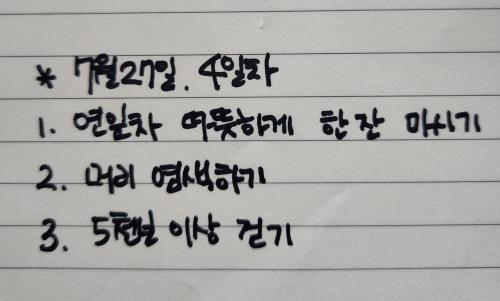 * 7월27일. 4일차
1. 연잎차 따뜻하게 한잔 마시기
2. 머리 염색하기
3. 5천보 이상 걷기